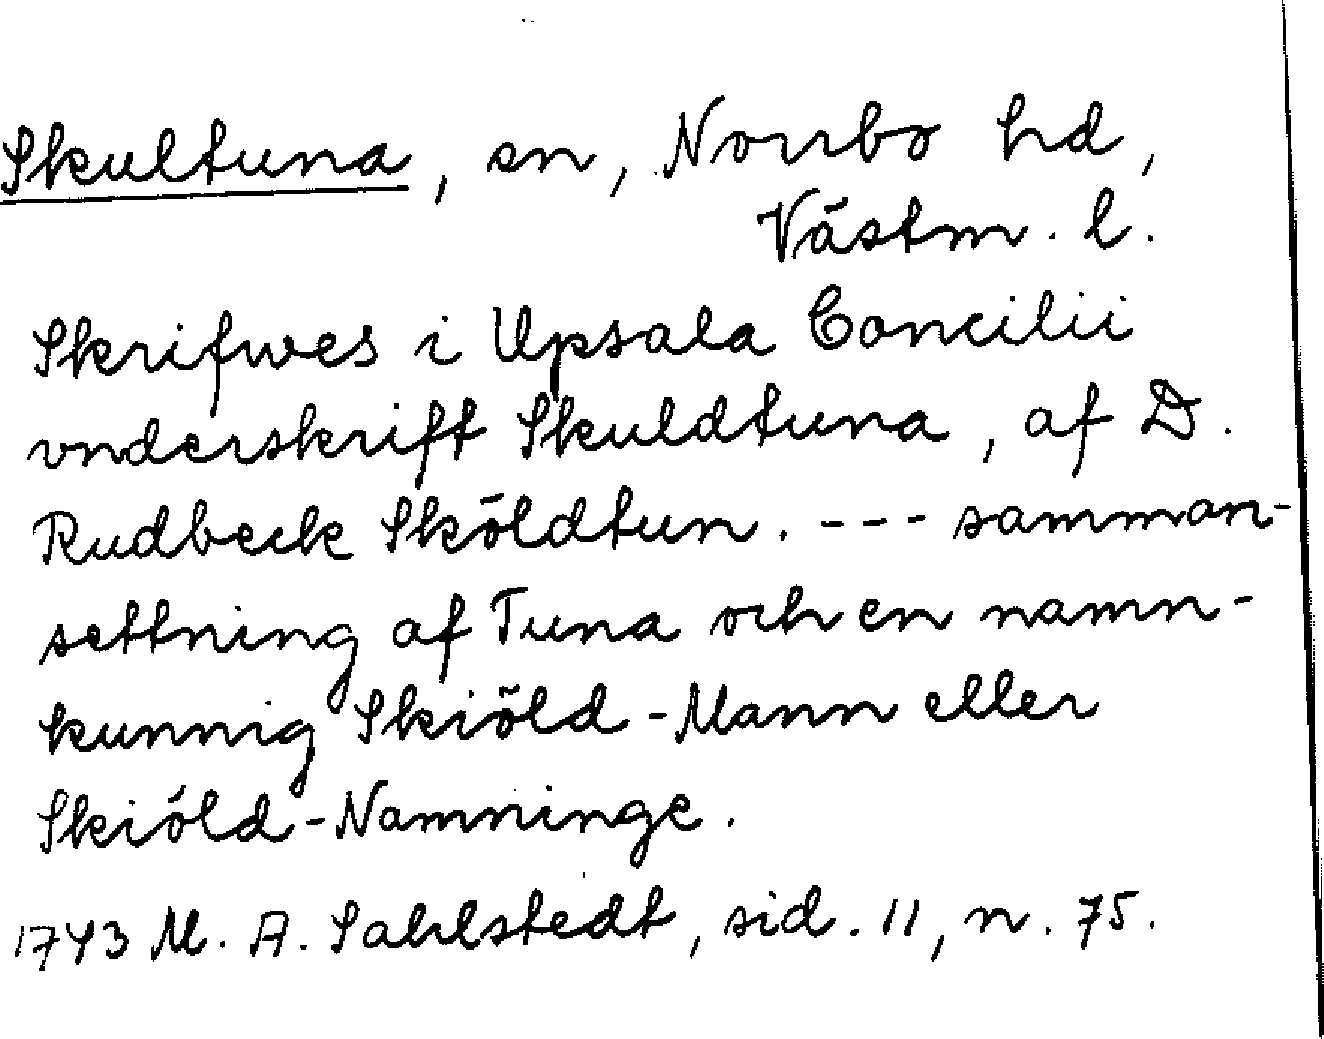 Skultuna, sn, Norrbo hd,
Västm. l.
Skrifwes i Upsala Concilii
vnderskrift Skuldtuna, af D.
Rudbeck Sköldtun. --- samman-
settning af Tuna och en namn-
kunnig Skiöld-Mann eller
Skiöld-Namninge.
1743 M. A. Sahlstedt, sid. 11, n. 75.